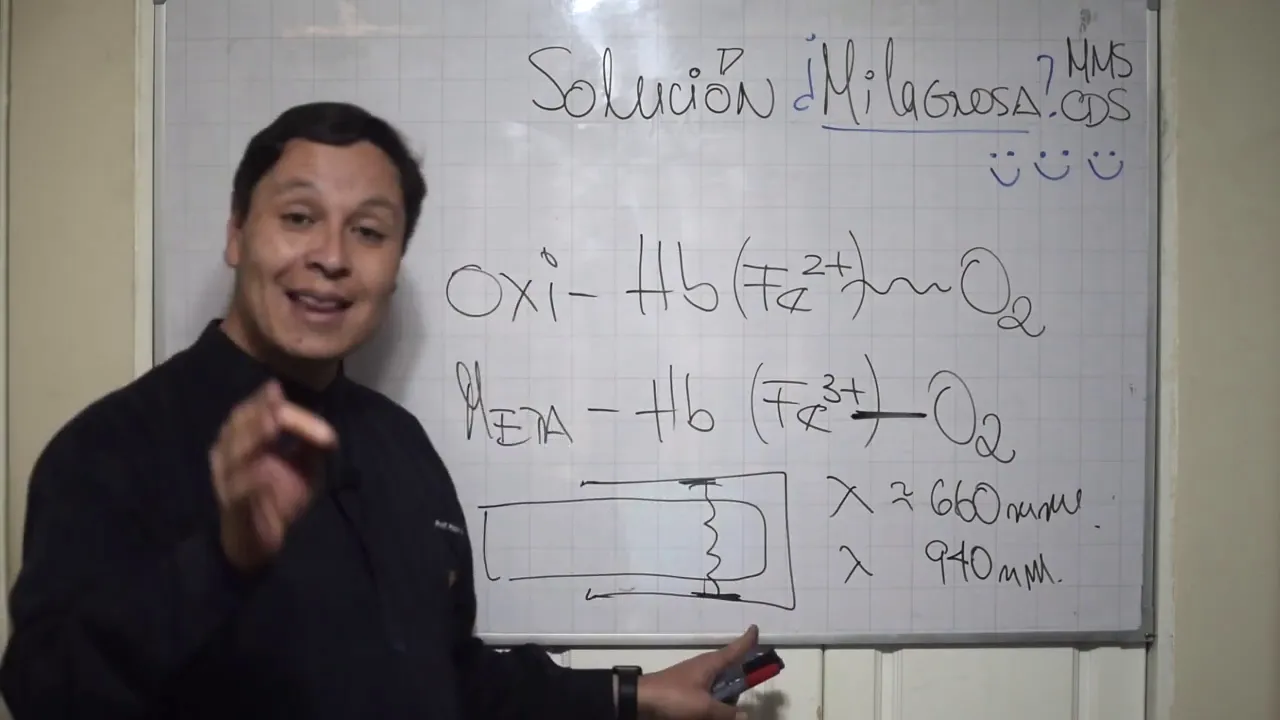 Solución ¿Milagrosa? MMS
CDS
Oxi - Hb (Fe²⁺) O₂
Meta - Hb (Fe³⁺) - O₂
λ ≈ 660 nm.
λ 940 nm.